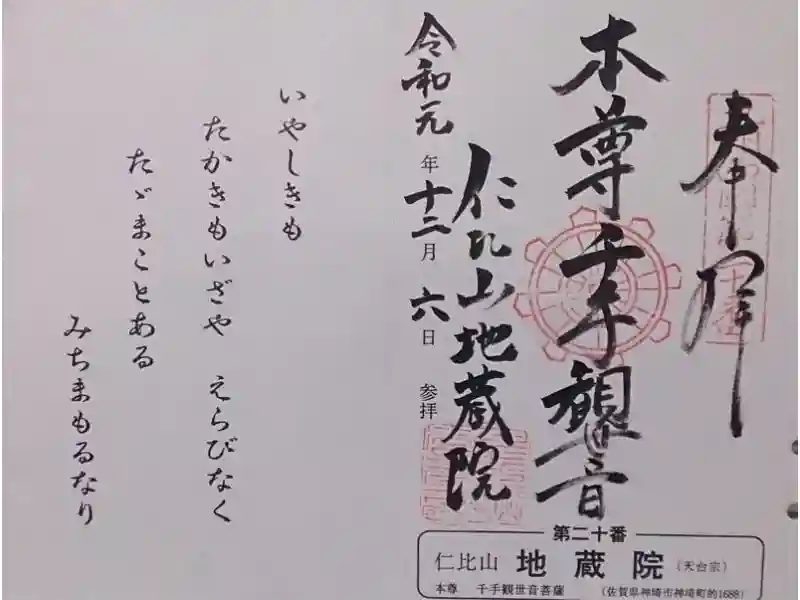 奉拝
本尊千手観世音
仁比山地蔵院
令和元年十二月六日参拝
第二十番
仁比山 地蔵院 (天台宗)
本尊 千手観世音菩薩 (佐賀県神埼市神埼町的1688)
いやしきも
たかきもいざや えらびなく
たゞまことある
みちまもるなり